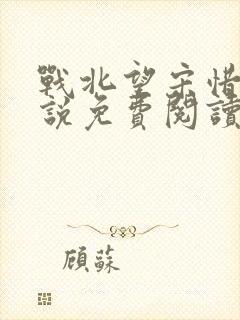 戰北望宋惜
說免費閱讀
顧蘇